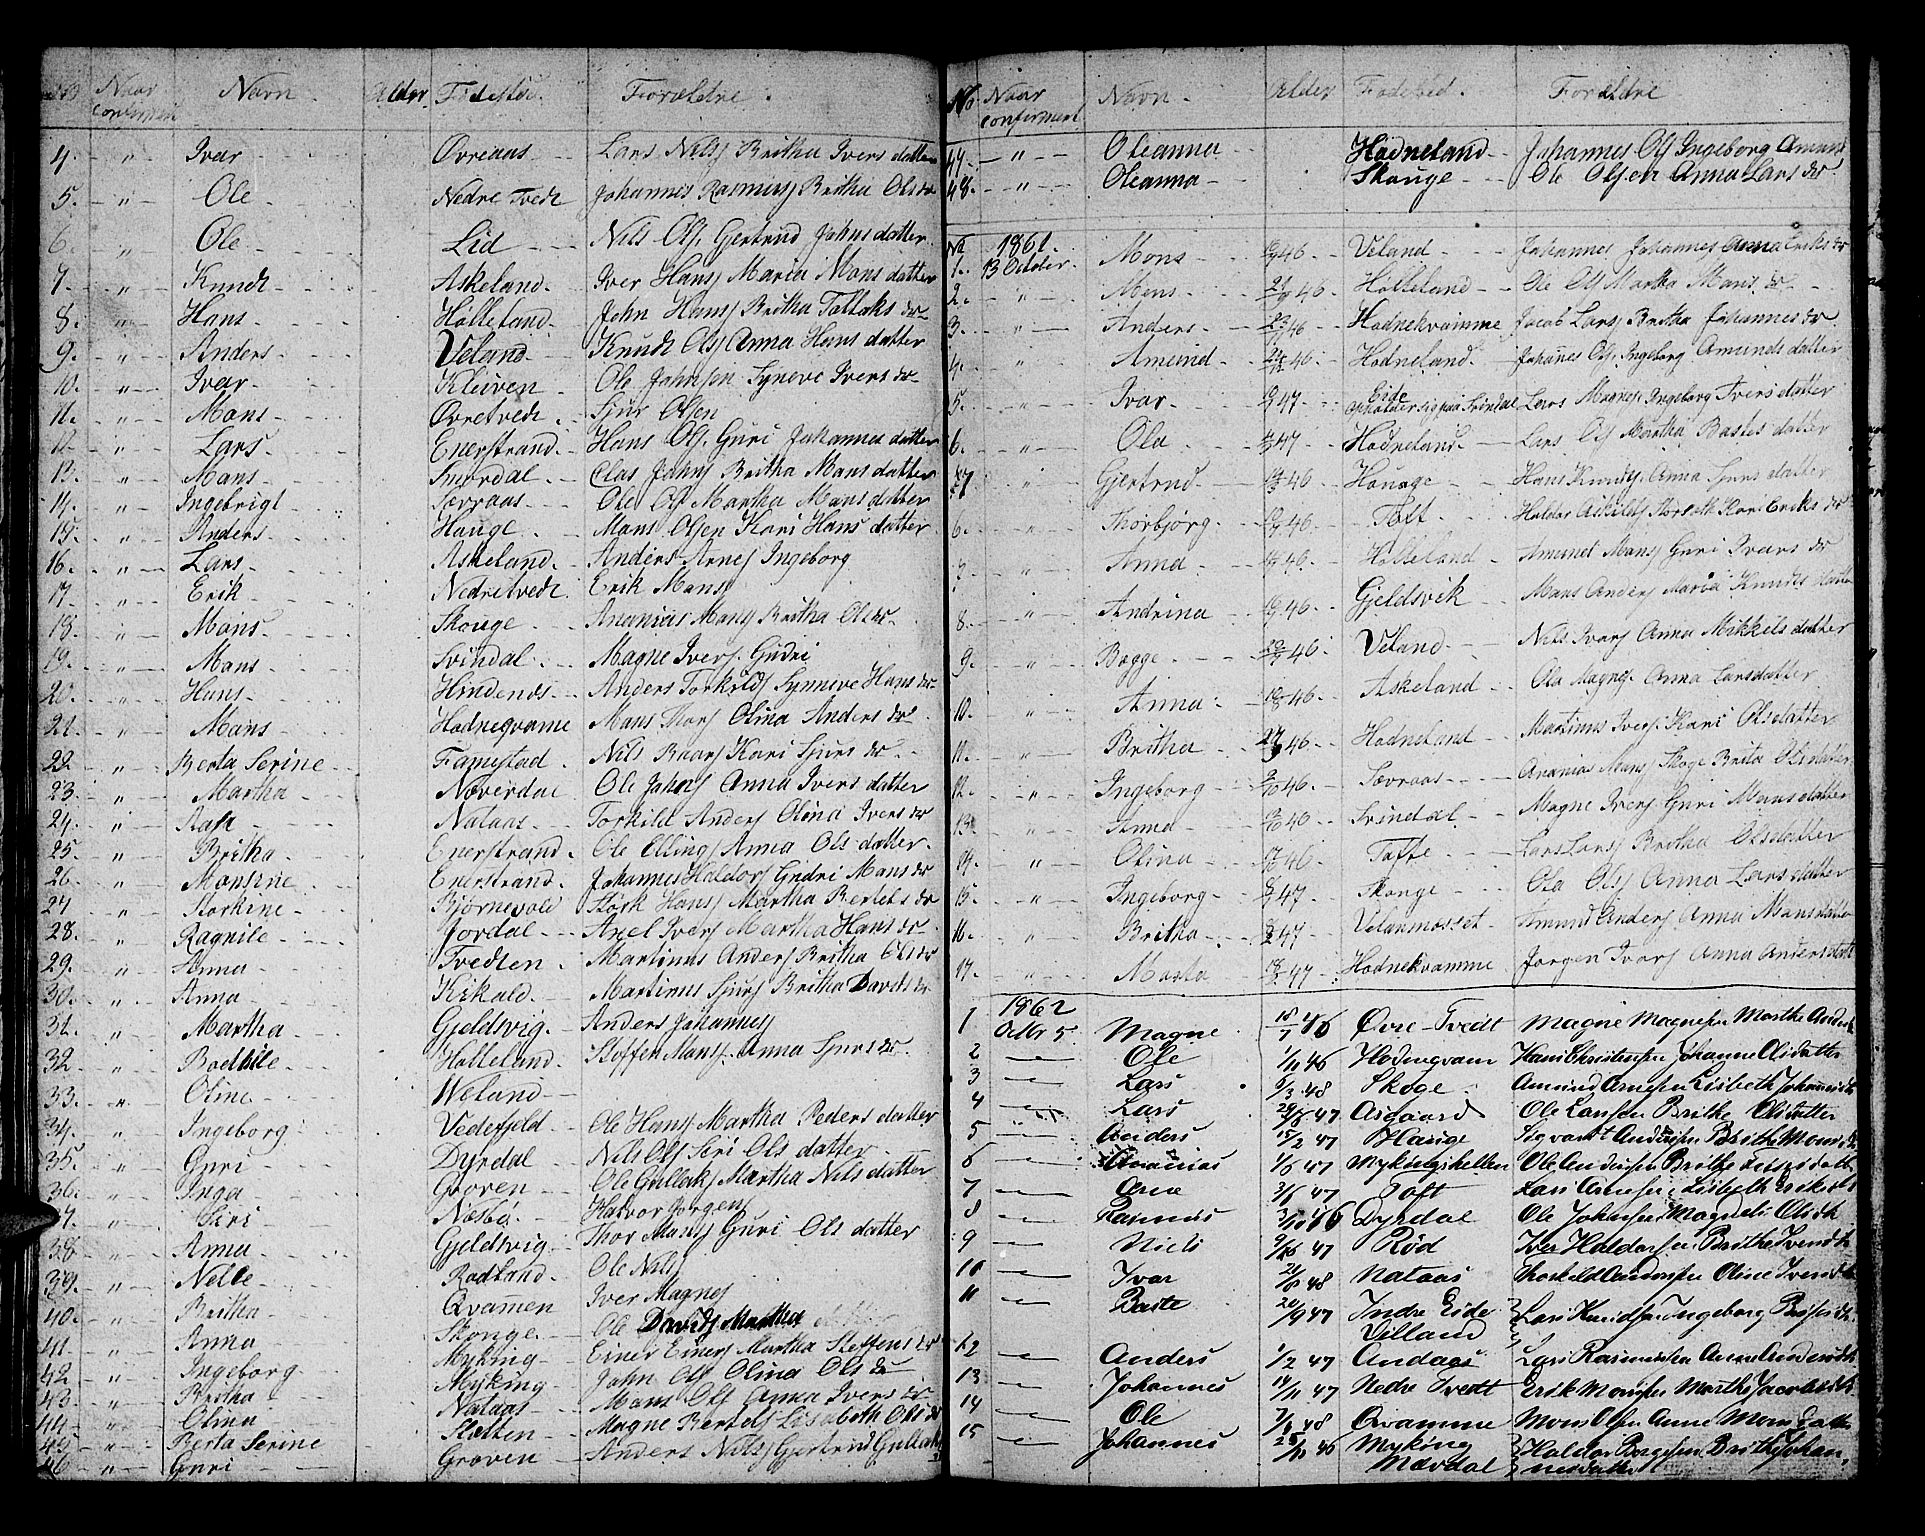 No Naar confirmert Navn Alder Fødested Forældre
4. " Ivar Øvreaas Lars Nilsj Britha Ivers datter
5. " Ole Nedre Tvedt Johannes Rasmusj Britha Ols dr
6. " Ole Lid Nils Olsj. Gertrud Johns datter
7. " Knudt Askeland Iver Hansj Maria Mons datter
8. " Hans Hølleland John Hansj Britha
9. " Anders Veland Knudt Olsj Anna Hans datter
10. " Ivar Kleiven Ole Johnsen Syneve Ivers dr
11. " Mons Øvretvedt Sjur Olsen
12. " Lars Enerstrand Hans Olsj. Guri Johannes datter
13. " Mons Clas Johnsj Britha Mons datter
14. " Ingebrigt Sævraas Ole Olsj Martha Mons datter
15. " Anders Hauge Mons Olsen Kari Hans datter
16. " Lars Askeland Anders Arnesj Ingeborg
17. " Erik Nedretvedt Erik Monsj
18. " Mons Skouge Ananias Monsj Britha Ols dr
19. " Mons Svindal Magne Iversj. Gudri
20. " Hans Hindenes Anders Torkildsj Synneve Hans dr
21. " Mons Hodneqvame Mons Thorsj Olina Anders dr
22. " Berta Serine Famestad Nils Kari Sjurs dr
23. " Martha Nøverdal Ole Johnsj Anna Ivers datter
24. " Nataas Torkild Andersj Olina Ivers dr
25. " Britha Enerstrand Ole Ellingsj Anna Ols datter
26. " Monsine Enerstrand Johannes Haldorsj Gudri Mons dr
27. " Storkine Bjørnevold Størk Hansj Martha Bertels dr
28. " Ragnile Jordal Axel Iversj Martha Hans dr
29. " Anna Tvedten Martinus Andersj Britha Ols dr
30. " Anna Martinus Sjursj Britha Davids dr
31. " Martha Gjeldsvig Anders Johannesj
32. " Bodhile Hølleland Stoffer Monsj. Anna Sjurs dr
33. " Oline Weland
34. " Ingeborg Vedefjeld Ole Hansj Martha Peders datter
35. " Guri Dyrdal Nils Olsj Siri Ols datter
36. " Inga Groven Ole Gullaksj Martha Nils datter
37. " Siri Næsbø Halvor Jørgens
38. " Anna Gjeldsvig Thor Monsj Guri Ols datter
39. " Nelle Radland Ole Nilsj
40. " Britha Qvammen Iver Magnesj
41. " Anna Skouge Ole Davidsj Martha datter
42. " Ingeborg Myking Einer Einersj Martha Steffens dr
43. " Britha Myking John Olsj Olina Ols dr
44. " Olina Nataas Mons Olsj Anna Ivers dr
45. " Berta Serine Sletten Magne Bertelsj Lisabeth Ols dr
46. " Guri Groven Anders Nilsj Gjertrud Gullaks
No Naar confirmert Navn Alder Fødested Forældre
47. " Oleanna Hodneland Johannes Olsj Ingeborg Amunds
48. " Oleanna Skouge Ole Olsen Anna Lars dr
No 1861
1. 13 October Mons 46 Veland Johannes Johannesj Anna Eriks dr
2. " Mons 46 Hølleland Ole Olsj Martha Mons dr
3. " Anders 46 Hodnekvamme Jacob Larsj Britha Johannes dr
4. " Amund 46 Hodneland Johannes Olsj. Ingeborg Amunds datter
5. " Ivar 47 Eide opholder sig paa Svindal Lars Magnesj Ingeborg Ivers datter
6. " Ola 47 Hodneland Lars Olsj Martha Bastes datter
7 " Gjertrud 46 Houge Hans Knudsj. Anna Sjurs datter
6. " Thorbjørg 46 Toft Haldor Kari Eriks dr
7. " Anna 46 Hølleland Amund Monsj Guri Ivars dr
8. " Andrina 46 Gjeldsvik Mons Andersj Maria Knudes datter
9. " Bagge 46 Veland Nils Ivarsj Anna Mikkels datter
10. " Anna 46 Askeland Ola Magnesj. Anna Larsdatter
11. " Britha 46 Hodneland Martinus Iversj. Kari Olsdatter
12. " Ingeborg 46 Sævraas Ananias Monsj Skoge Brita Olsdatter
13. " Anna 46 Svindal Magne Iversj Guri Mons datter
14. " Olina 46 Tofte Lars Larsj Britha Olsdatter
15. " Ingeborg 47 Skouge Ola Olsj Anna Lars datter
16. " Britha 47 Velanmosset Amund Andersj Anna Mons datter
17. " Marta 47 Hodnekvamme Jørgen Ivarsj Anna Anders datt
1862
1 Octbr 5 Magne 18/7 46 Øvre-Tvedt Magne Magnesen Marthe Anders
2 Ole 1/11 46 Hodneqvam Hans Christensen Johanne Olsdatter
3 Lars 5/3 48 Skoge Amund Arnesen Lisbeth Johannesd
4 Lars 47 Asgaard Ole Larssen Brithe Olsdatter
5 Anders 15/2 47 Hauge Sigvart Andersen Brithe Mons
6 Ananias 1/6 47 Mykingshellen Ole Andersen Brithe
7 Arne 3/6 47 Toft Lars Arnesen Lisbeth Eriksd
8 Rasmus 3/10 46 Dyrdal Ole Johnsen Magneli Olsdt
9 Niels 47 Rød Iver Haldorsen Brithe Iversdt
10 Ivar 48 Nataas Thorkild Andersen Oline Iversdt
11 Baste 20/9 47 Indre Eide Villand Lars Knudsen Ingeborg
12 Anders 1/2 47 Andaas Lars Rasmussen Anne Andersdt
13 Johannes 14/11 47 Nedre Tvedt Erik Monsen Marthe Jacobsdt
14 Ole 48 Qvamme Mons Olsen Anne Monsdatter
15 Johannes 46 Myking Mærdal Haldor Børgesen Brithe Johannesdatter